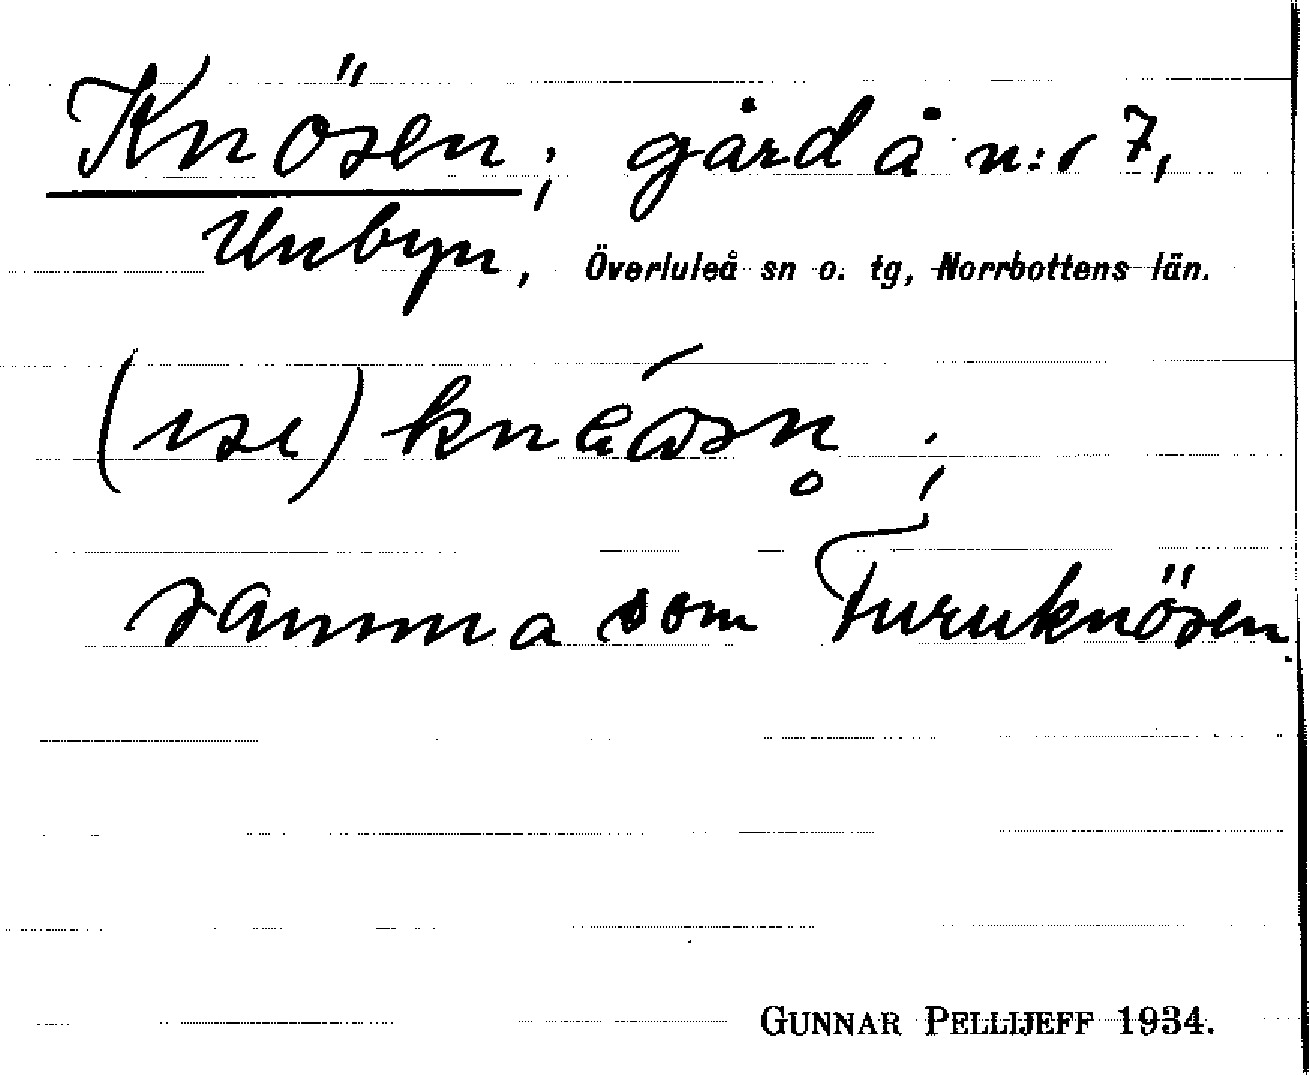 Knösen; gård å n:r 7,
Unbyn, Överluleå sn o. tg, Norrbottens län.
(ise)
samma som Furuknösen.
GUNNAR PELLIJEFF 1934.